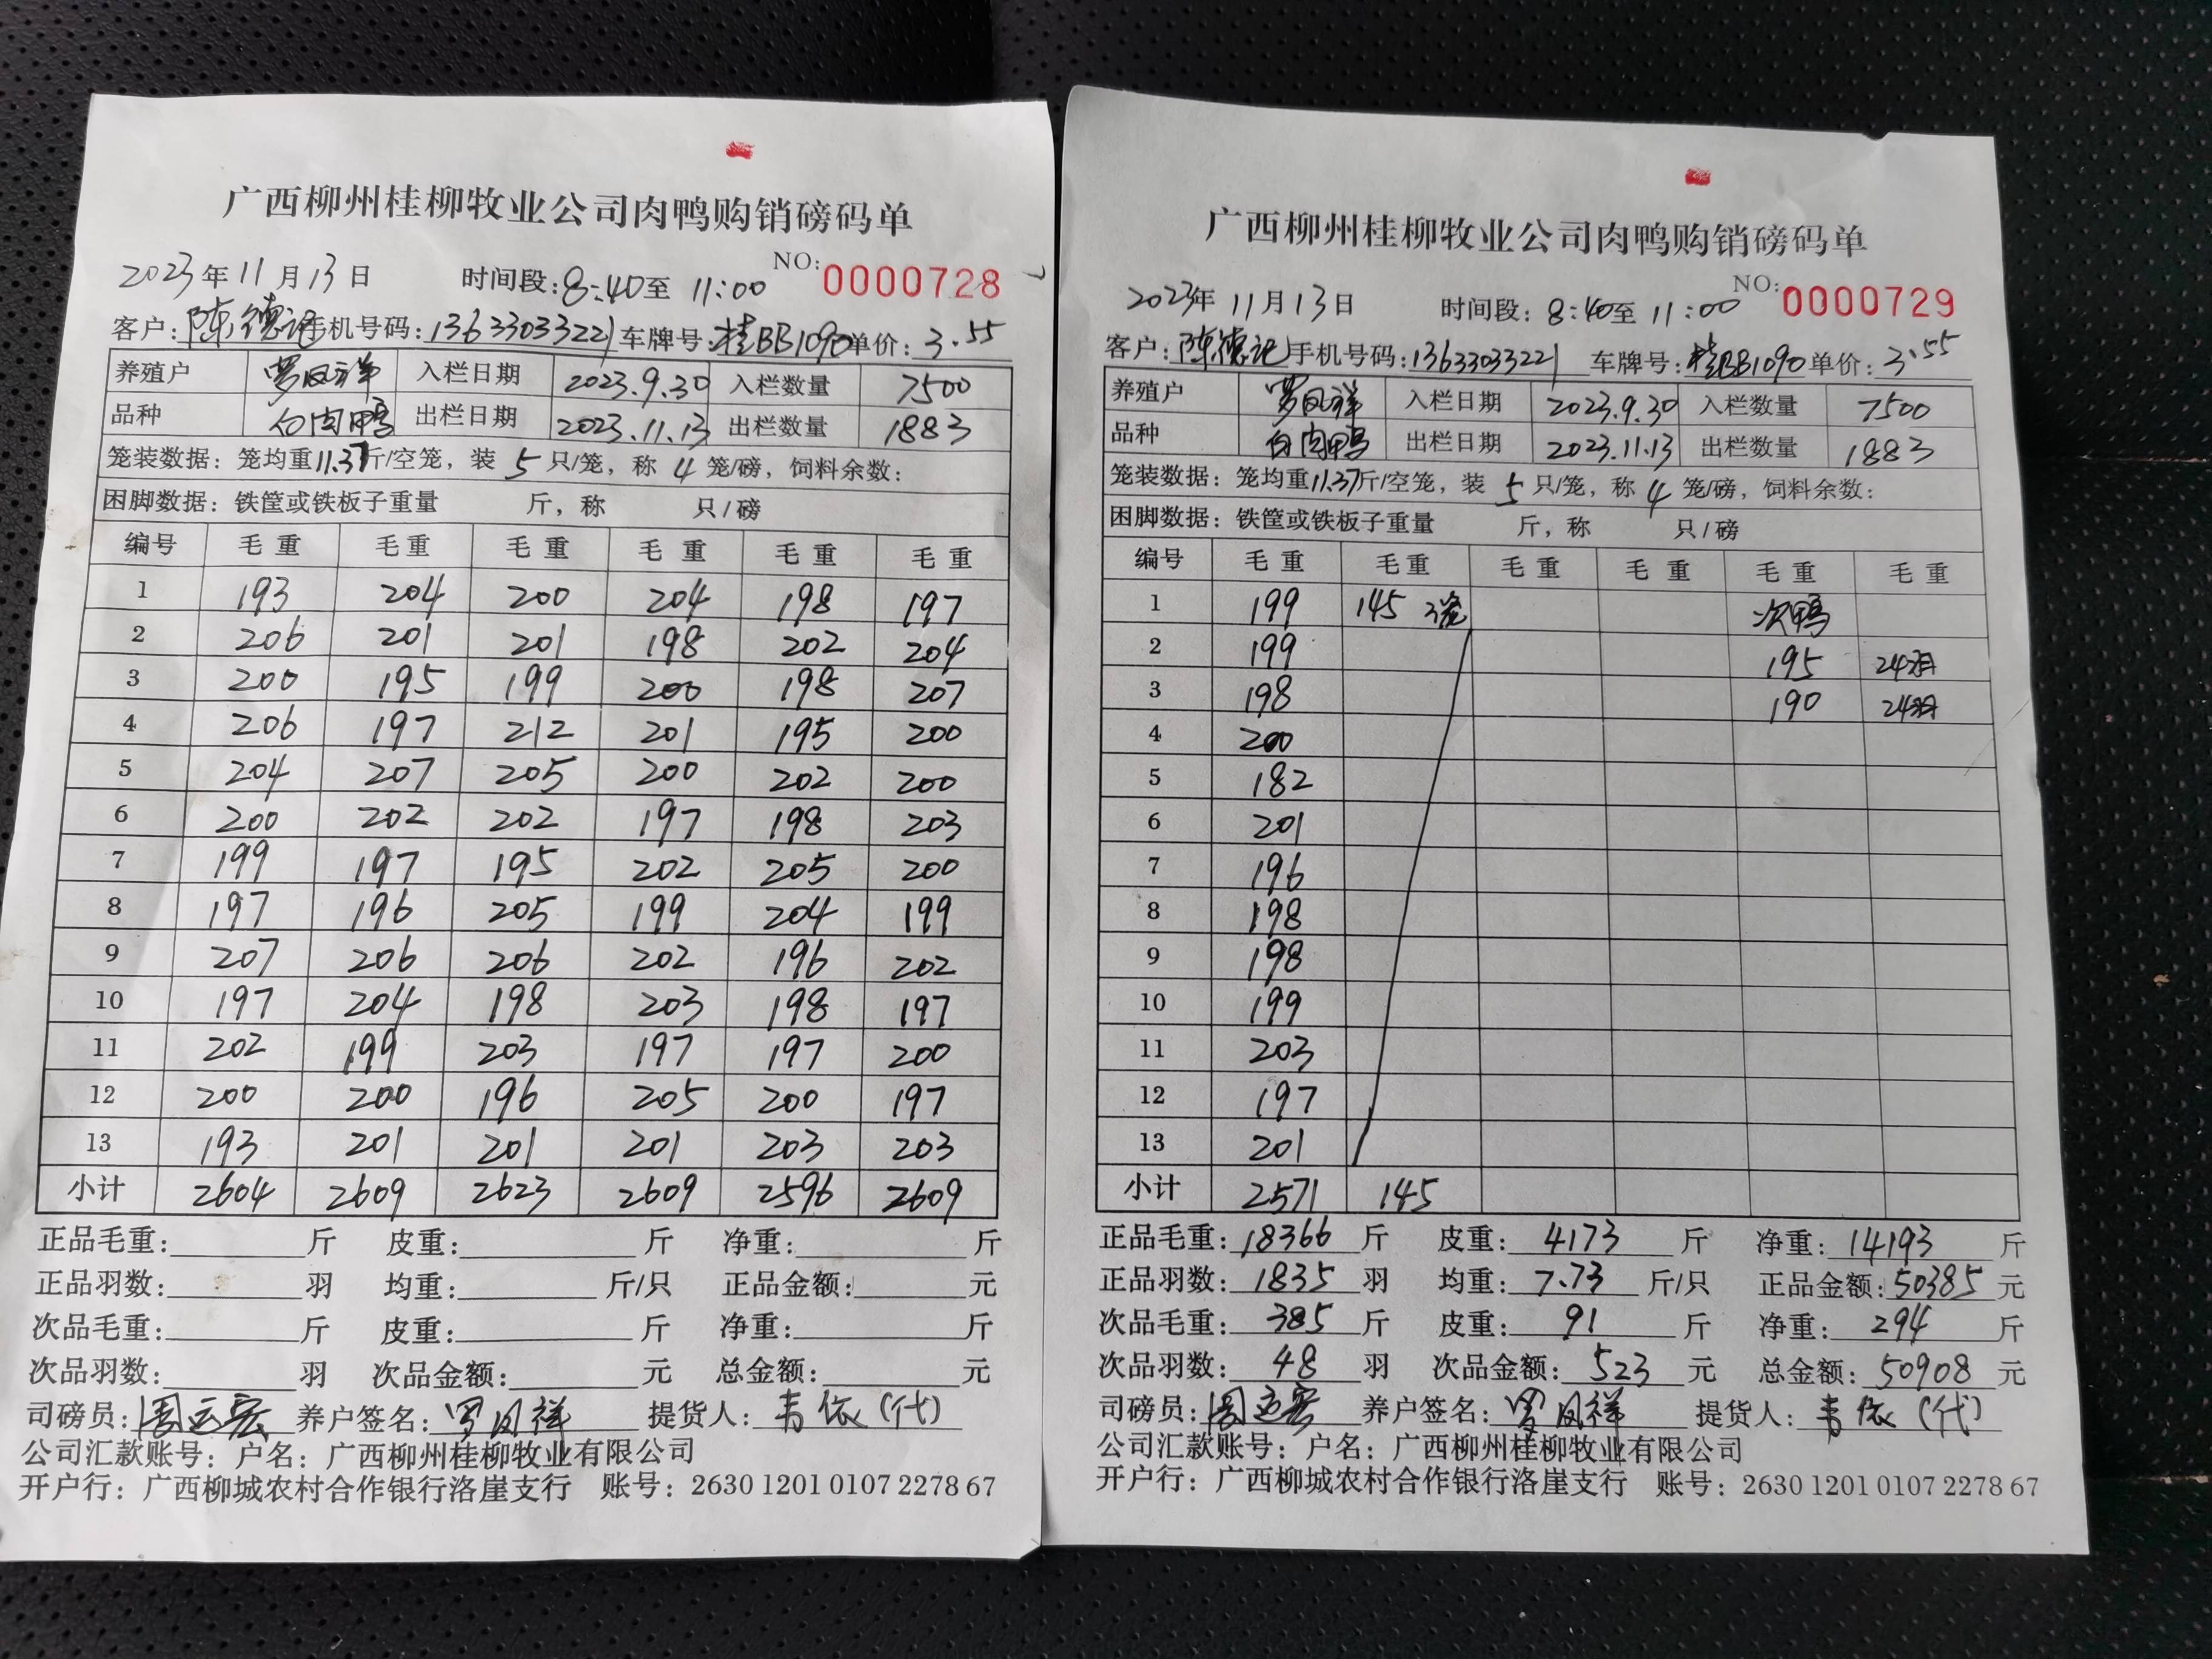 广西柳州桂柳牧业公司肉鸭购销磅码单
2023年11月13日 时间段:8:40至11:00 NO:0000728
客户:陈德记手机号码:13633033221车牌号:桂BB1090单价:3.55
养殖户 罗凤祥 入栏日期 2023.9.30 入栏数量 7500
品种 白肉鸭 出栏日期 2023.11.13 出栏数量 1883
笼装数据:笼均重11.37斤/空笼,装5只/笼,称4笼/磅,饲料余数:
困脚数据:铁筐或铁板子重量 斤,称 只/磅
编号 毛重 毛重 毛重 毛重 毛重 毛重
1 193 204 200 204 198 197
2 206 201 201 198 202 204
3 200 195 199 200 198 207
4 206 197 212 201 195 200
5 204 207 205 200 202 200
6 200 202 202 197 198 203
7 199 197 195 202 205 200
8 197 196 205 199 204 199
9 207 206 206 202 196 202
10 197 204 198 203 198 197
11 202 199 203 197 197 200
12 200 200 196 205 200 197
13 193 201 201 201 203 203
小计 2604 2609 2623 2609 2596 2609
正品毛重: 斤 皮重: 斤 净重: 斤
正品羽数: 羽 均重: 斤/只 正品金额: 元
次品毛重: 斤 皮重: 斤 净重: 斤
次品羽数: 羽 次品金额: 元 总金额: 元
司磅员:周运宏 养户签名:罗凤祥 提货人:韦依(代)
公司汇款账号:户名:广西柳州桂柳牧业有限公司
开户行:广西柳城农村合作银行洛崖支行 账号:2630 1201 0107 2278 67
广西柳州桂柳牧业公司肉鸭购销磅码单
2023年11月13日 时间段:8:40至11:00 NO:0000729
客户:陈德记手机号码:13633033221 车牌号:桂BB1090单价:3.55
养殖户 罗凤祥 入栏日期 2023.9.30 入栏数量 7500
品种 白肉鸭 出栏日期 2023.11.13 出栏数量 1883
笼装数据:笼均重11.37斤/空笼,装5只/笼,称4笼/磅,饲料余数:
困脚数据:铁筐或铁板子重量 斤,称 只/磅
编号 毛重 毛重 毛重 毛重 毛重 毛重
1 199 145 3笼 次鸭
2 199 195 24羽
3 198 190 24羽
4 200
5 182
6 201
7 196
8 198
9 198
10 199
11 203
12 197
13 201
小计 2571 145
正品毛重:18366斤 皮重:4173斤 净重:14193斤
正品羽数:1835羽 均重:7.73斤/只 正品金额:50385元
次品毛重:385斤 皮重:91斤 净重:294斤
次品羽数:48羽 次品金额:523元 总金额:50908元
司磅员:周运宏 养户签名:罗凤祥 提货人:韦依(代)
公司汇款账号:户名:广西柳州桂柳牧业有限公司
开户行:广西柳城农村合作银行洛崖支行 账号:2630 1201 0107 2278 67